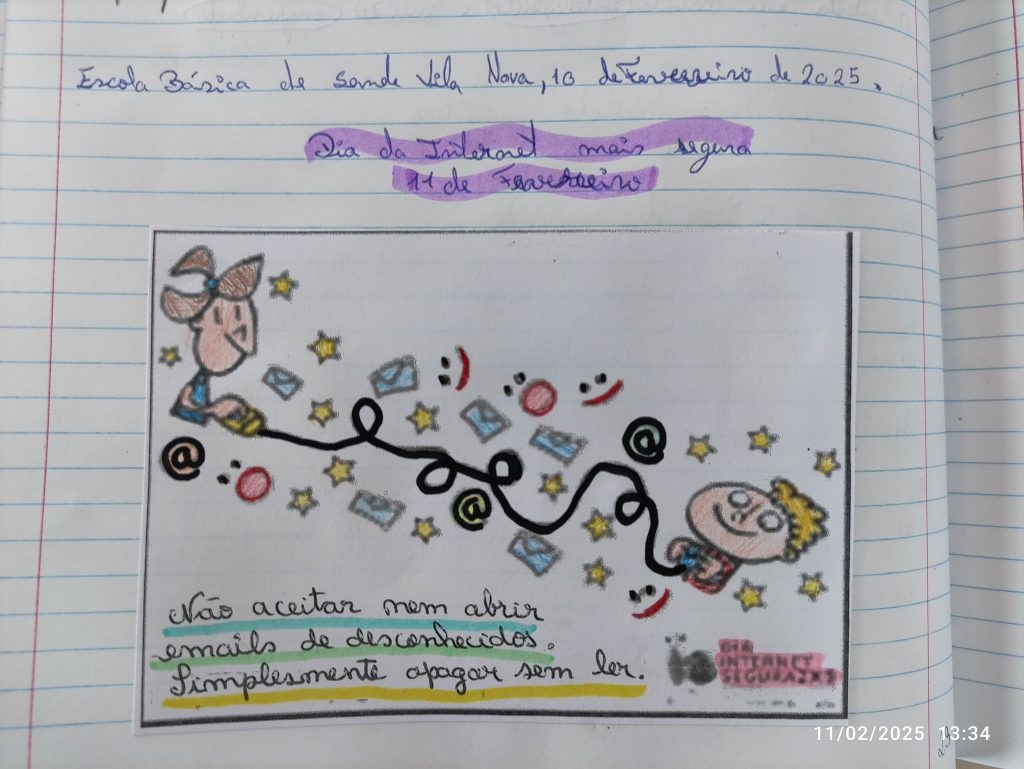 Escola Básica de Sande Vila Nova, 10 de Fevereeiro de 2025.
Dia da Internet mais segura
11 de Fevereeiro
@
@
@
Não aceitar nem abrir
emails de desconhecidos.
Simplesmente apagar sem ler.
DIA
INTERNET
SEGURA2K9
11/02/2025 13:34